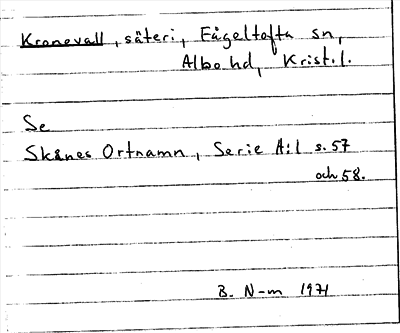 Kronevall, säteri, Fågeltofta sn,
Albo hd, Krist.l.
Se
Skånes Ortnamn, Serie A:1 s. 57
och 58.
B. N-m 1971